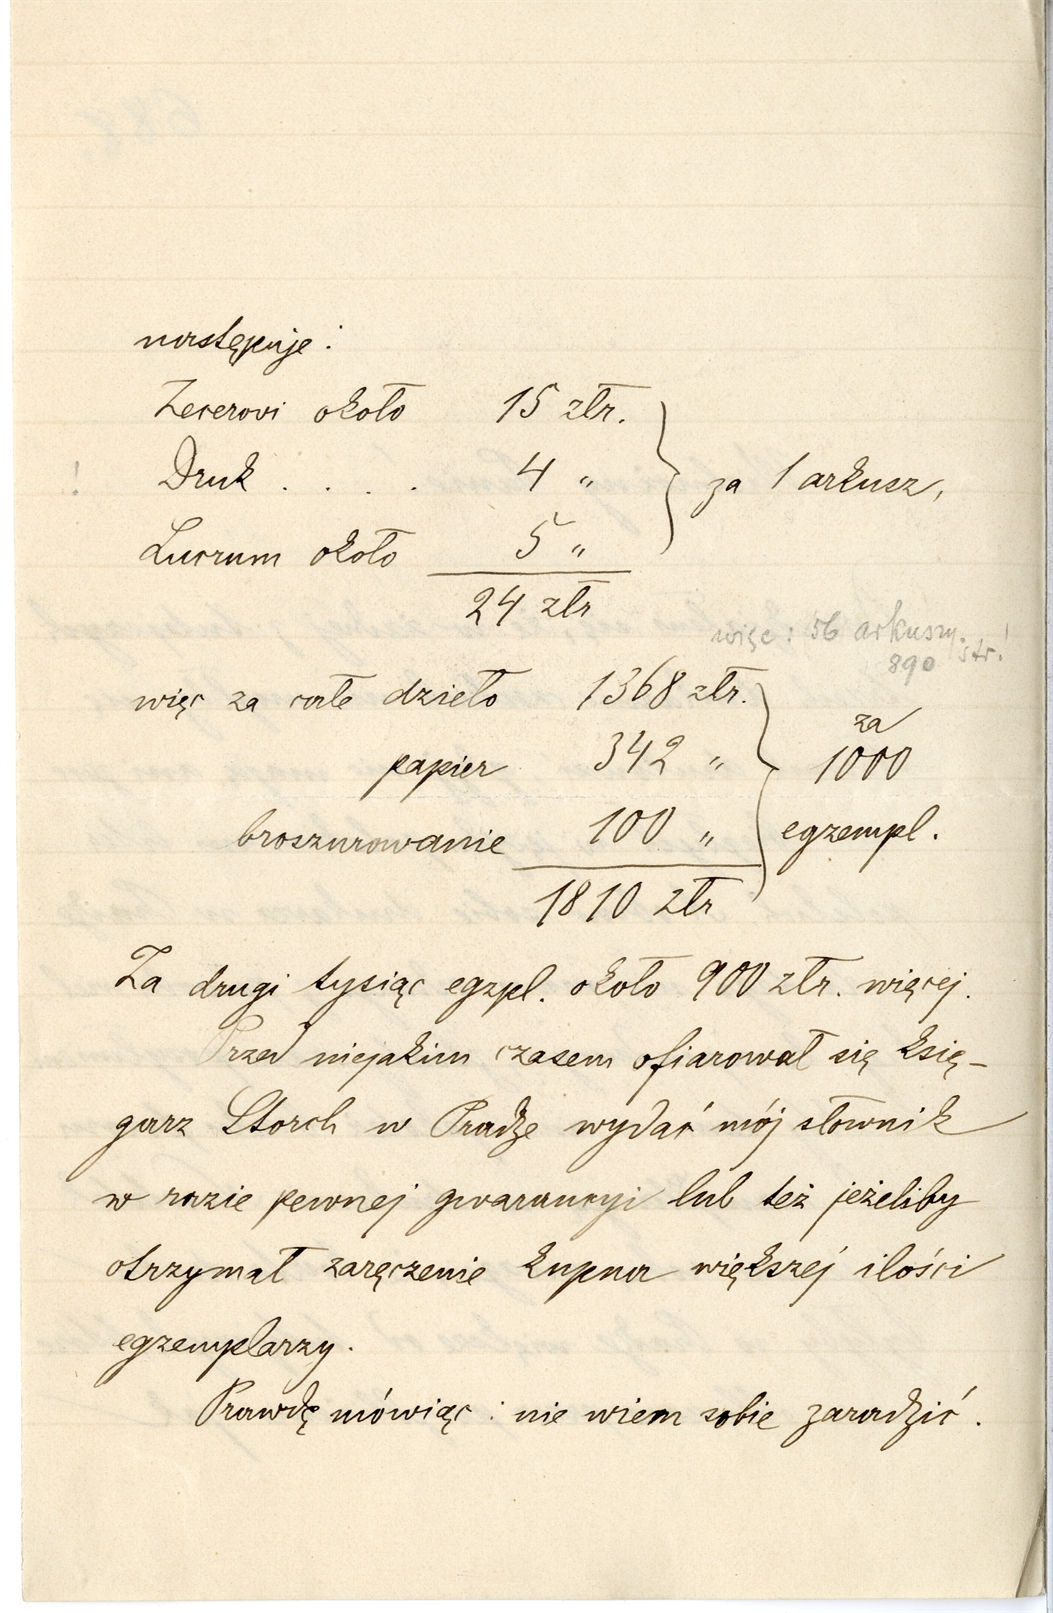 następuje:
Zecerovi około 15 złr.
! Druk . . . . 4 „ za 1 arkusz,
Lucrum około 5 „
24 złr
więc: 56 arkuszy.
890 str!
więc za całe dzieło 1368 złr.
papier 342 „ za 1000
broszurowanie 100 „ egzempl.
1810 złr
Za drugi tysiąc egzpl. około 900 złr. więcej.
Przed niejakim czasem ofiarował się księ-
garz Storch w Pradze wydać mój słownik
w razie pewnej gwarancyi lub też jeżeliby
otrzymał zaręczenie kupna większéj ilości
egzemplarzy.
Prawdę mówiąc: nie wiem sobie zaradzić.